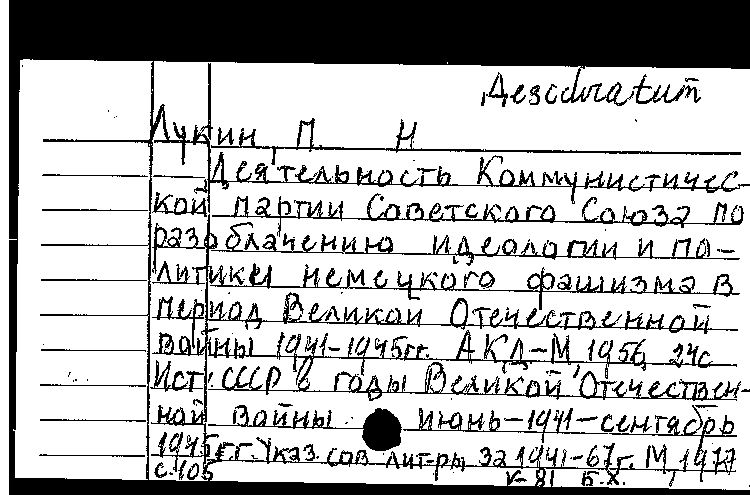 Desideratum
Лукин, П Н
Деятельность Коммунистичес-
кой партии Советского Союза по
разоблачению идеологии и по-
литики немецкого фашизма в
период Великой Отечественной
войны 1941-1945гг. АКД-М, 1956, 24с
Ист. СССР в годы Великой Отечествен-
ной войны июнь-1941-сентябрь
1945гг. Указ. сов лит-ры за 1941-67г. М, 1977
с.105 V-81 Б.Х.